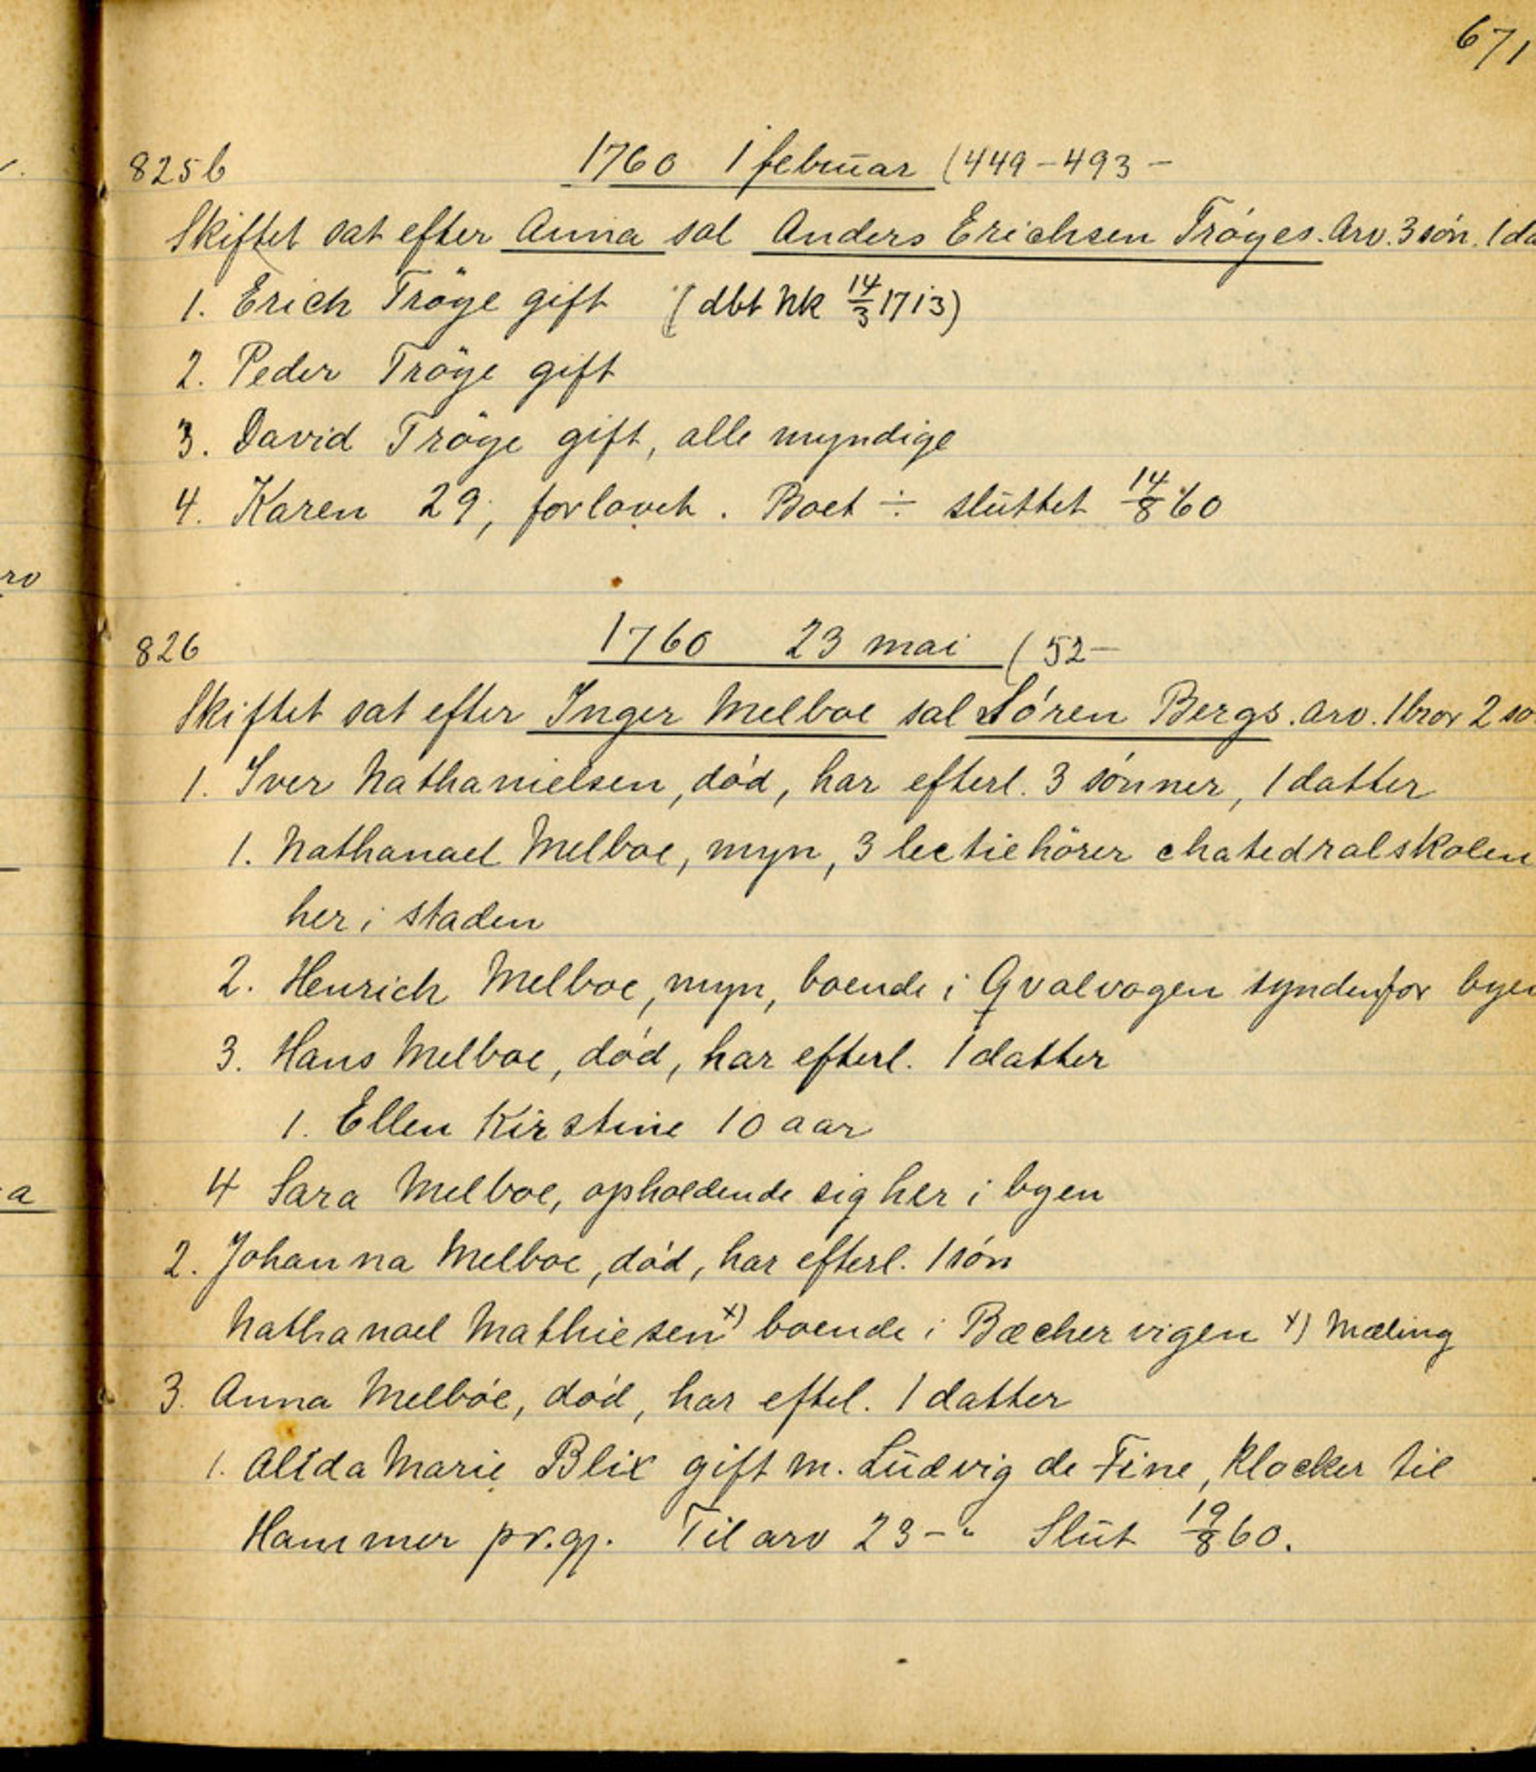 671
825b 1760 1 februar (449-493-
Skiftet sat efter Anna sal Anders Erichsen Trøyes. Arv. 3 søn. 1 da
1. Erich Trøye gift (dbt Nk 14/3 1713)
2. Peder Trøye gift
3. David Trøye gift, alle myndige
4. Karen 29, forlovet. Boet ÷ sluttet 14/8 60
826 1760 23 mai (52-
Skiftet sat efter Inger Melboe sal Søren Bergs. Arv. 1 bror 2 sø
1. Iver Nathanielsen, død, har efterl. 3 sønner, 1 datter
1. Nathanael Melboe, myn, 3 lectiehører chatedralskolen
her i staden
2. Henrich Melboe, myn, boende i Qvalvogen syndenfor byen
3. Hans Melboe, død, har efterl. 1 datter
1. Ellen Kirstine 10 aar
4 Sara Melboe, opholdende sig her i byen
2. Johanna Melboe, død, har efterl. 1 søn
Nathanael Mathiesen x) boende i Bæchervigen x) Mæling
3. Anna Melbøe, død, har eftel. 1 datter
1. Alida Marie Blix gift m. Ludvig de Fine, klocker til
Hammer pr.gj. Til arv 23-" Slut 19/8 60.
ro
a